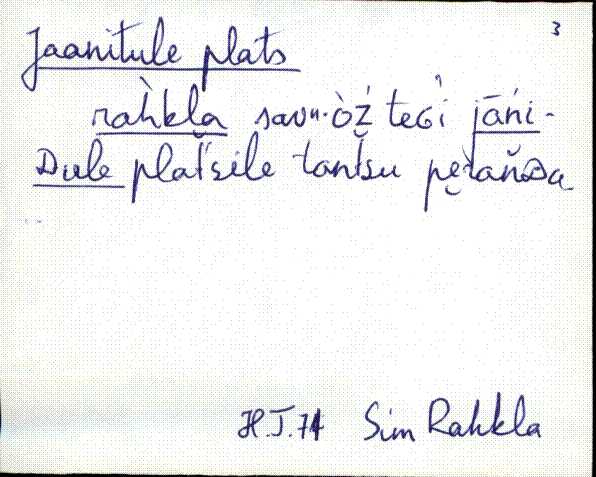 3
Jaanitule plats
rah̀kla savu·òź teGi jāńi-
Dule plat́sile tantsu pe̮rańDa
H.J. 71 Sim Rahkla